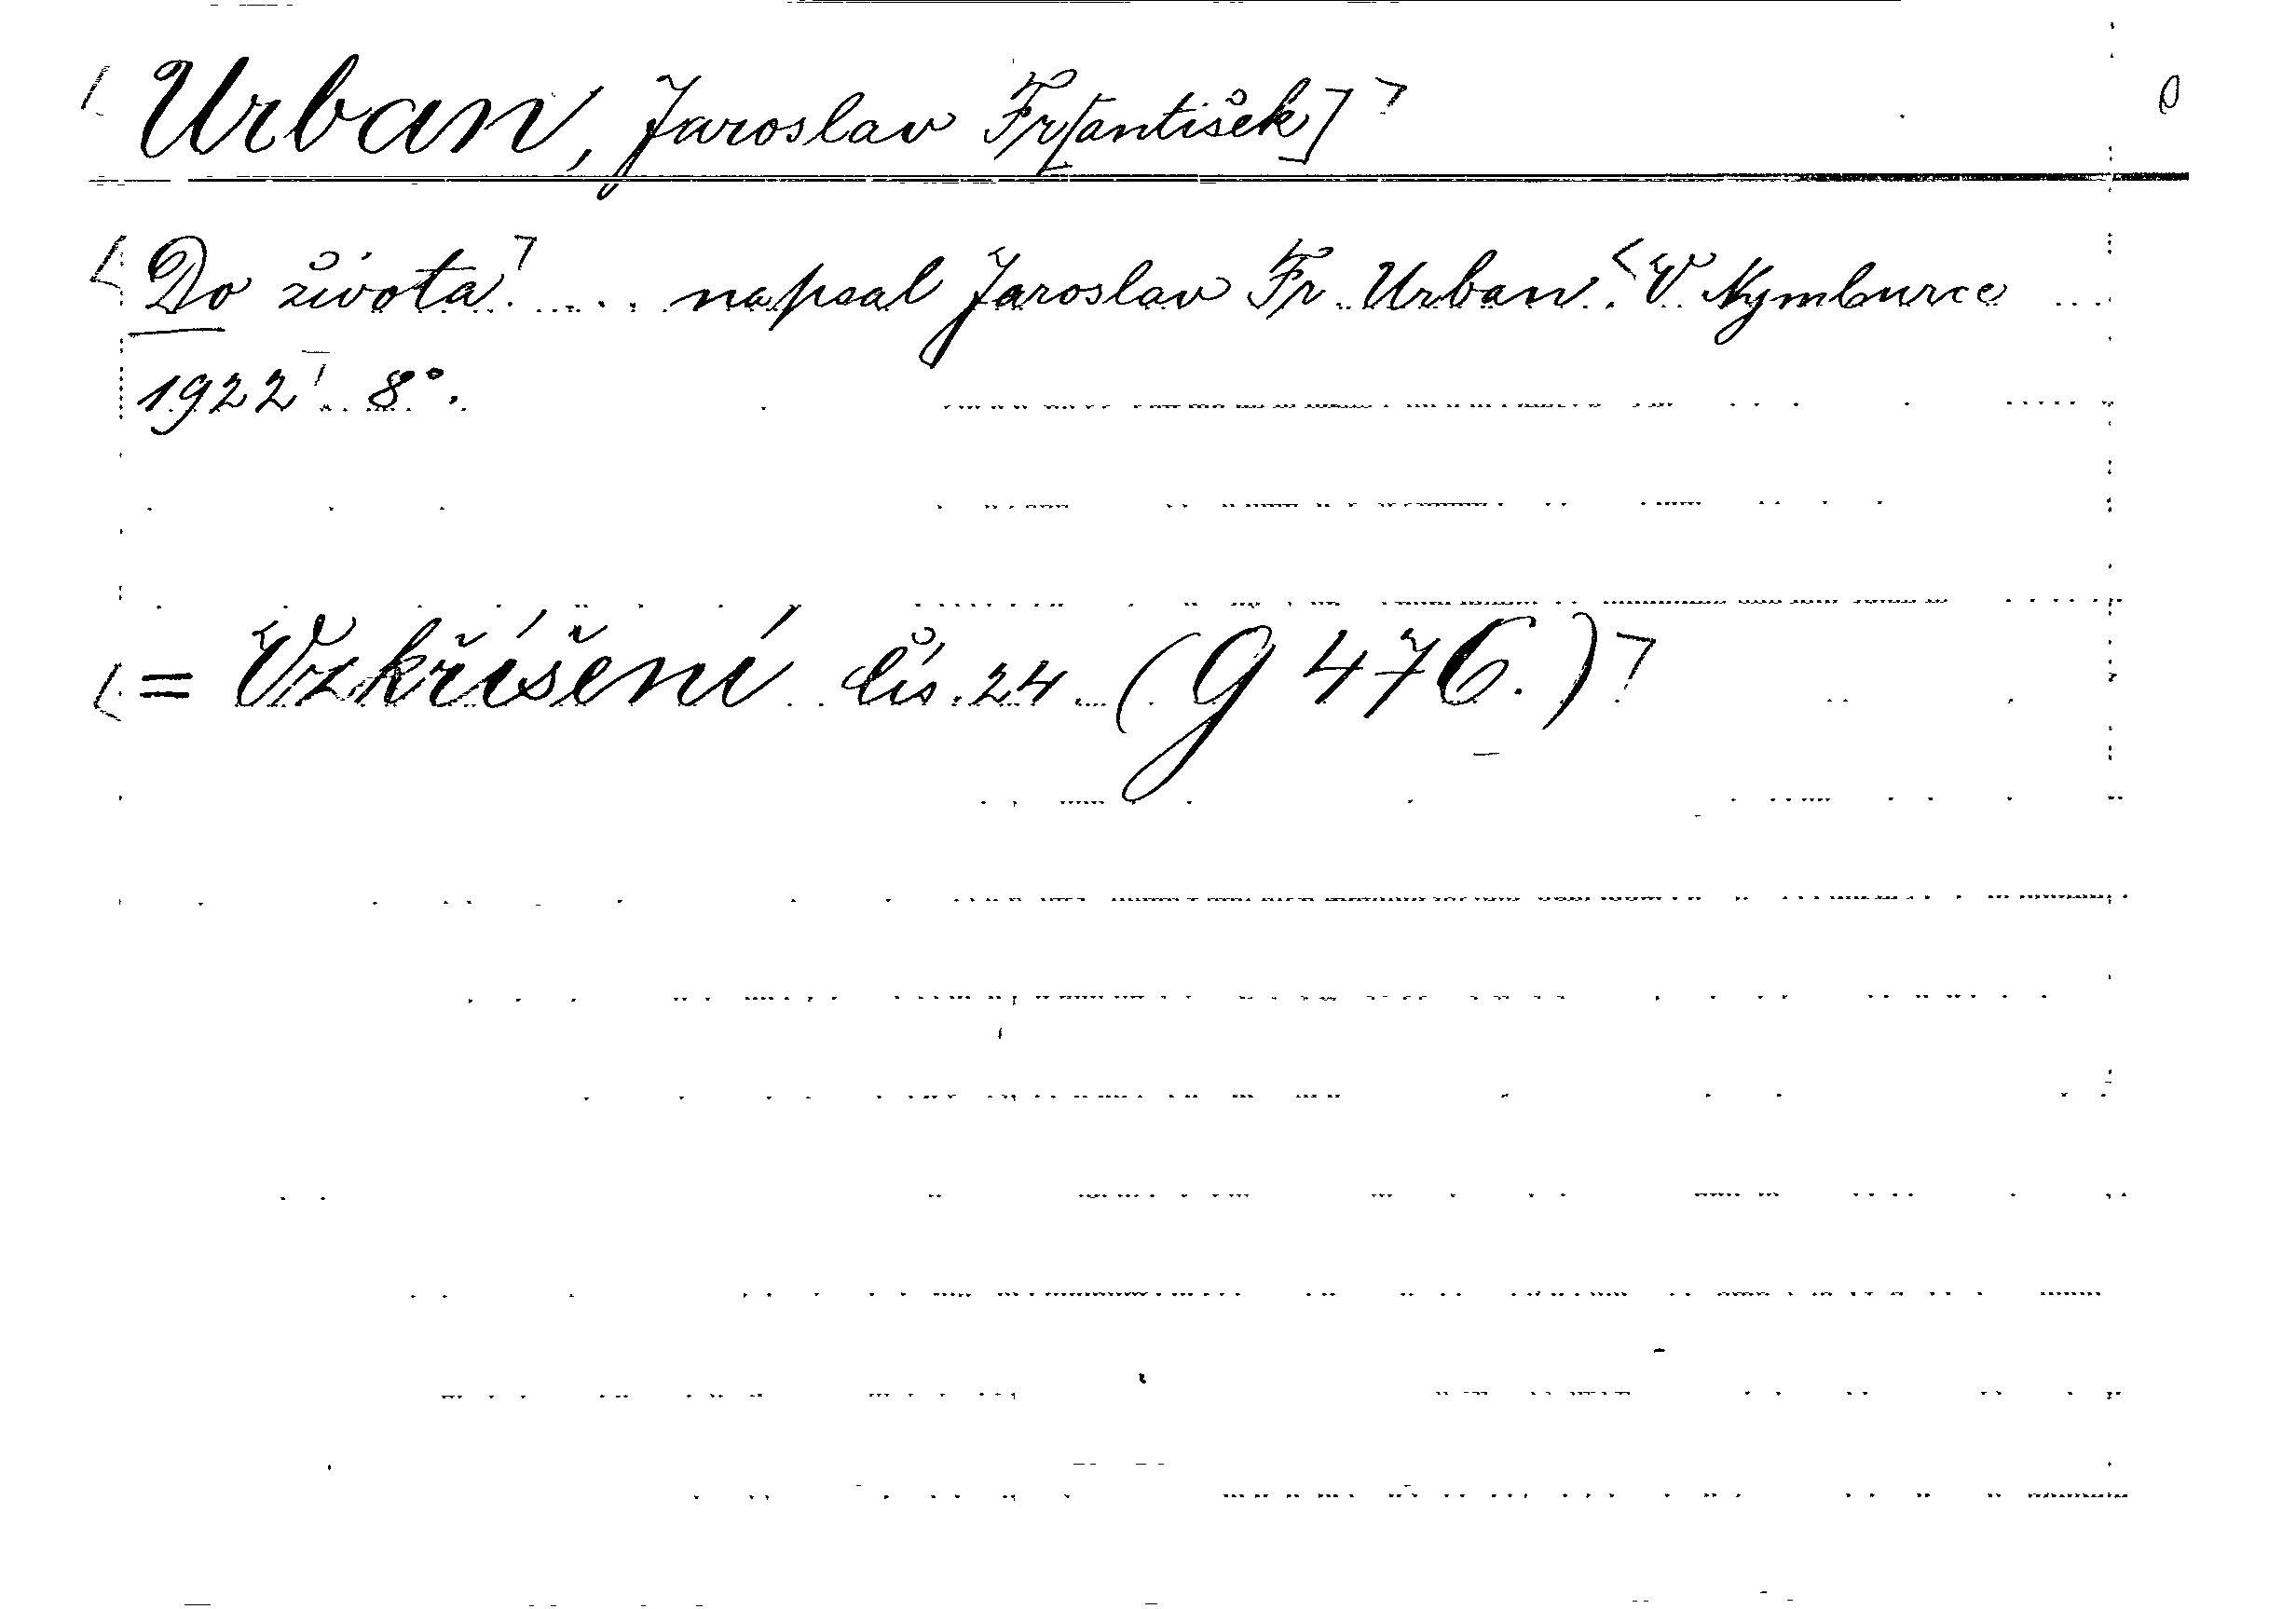 Urban, Jaroslav Fr[antišek]
Do života! .... napsal Jaroslav Fr. Urban. V Nymburce
1922 8°.
= Vzkříšení čís. 24 (g 476.)